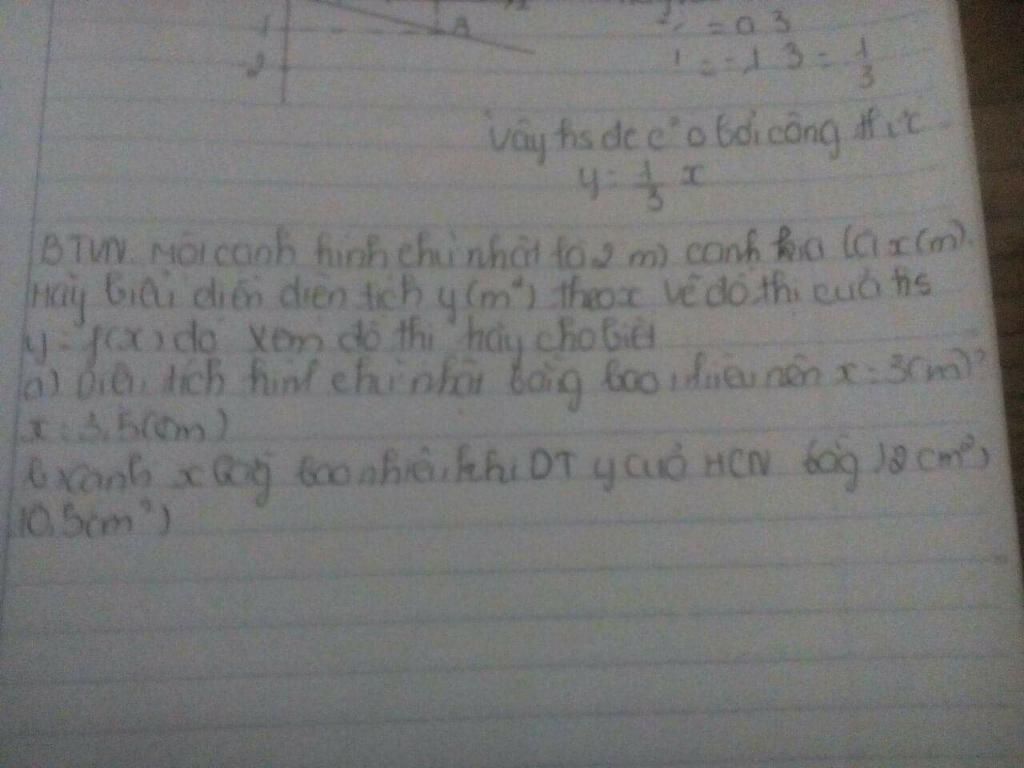 1 A = a 3
-2 1 = -1 3 = 1/3
Vậy hs đc c°o bởi công thức
y = 1/3 x
BTVN. Một cạnh hình chữ nhật là 2 m) cạnh kia là x(m).
Hãy biểu diễn diện tích y(m²) theo x vẽ đồ thị của hs
y = f(x) đó xem đồ thị hãy cho biết
a) Diện tích hình chữ nhật bằng bao nhiêu nến x = 3(m)?
x = 3,5(m)
b, cạnh x bằng bao nhiêu khi DT y của HCN bằng (m²)
10,5(m²)